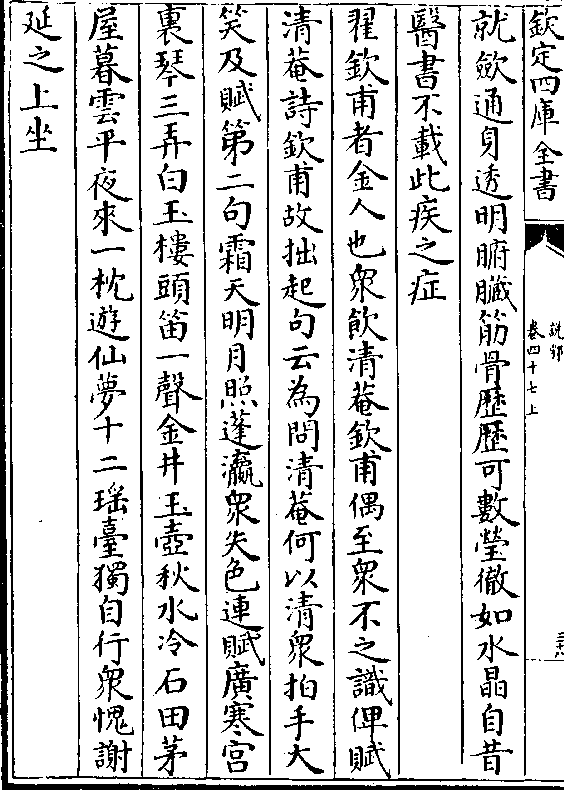 欽定四庫全書
說郛
卷四十七上
就斂通身透明腑臟筋骨歷歷可數瑩徹如水晶自昔
醫書不載此疾之症
翟欽甫者金人也衆飲清菴欽甫偶至衆不之識俾賦
清菴詩欽甫故拙起句云為問清菴何以清衆拍手大
笑及賦第二句霜天明月照蓬瀛衆失色連賦廣寒宫
裏琴三弄白玉樓頭笛一聲金井玉壺秋水冷石田茅
屋暮雲平夜來一枕遊仙夢十二瑶臺獨自行衆愧謝
延之上坐